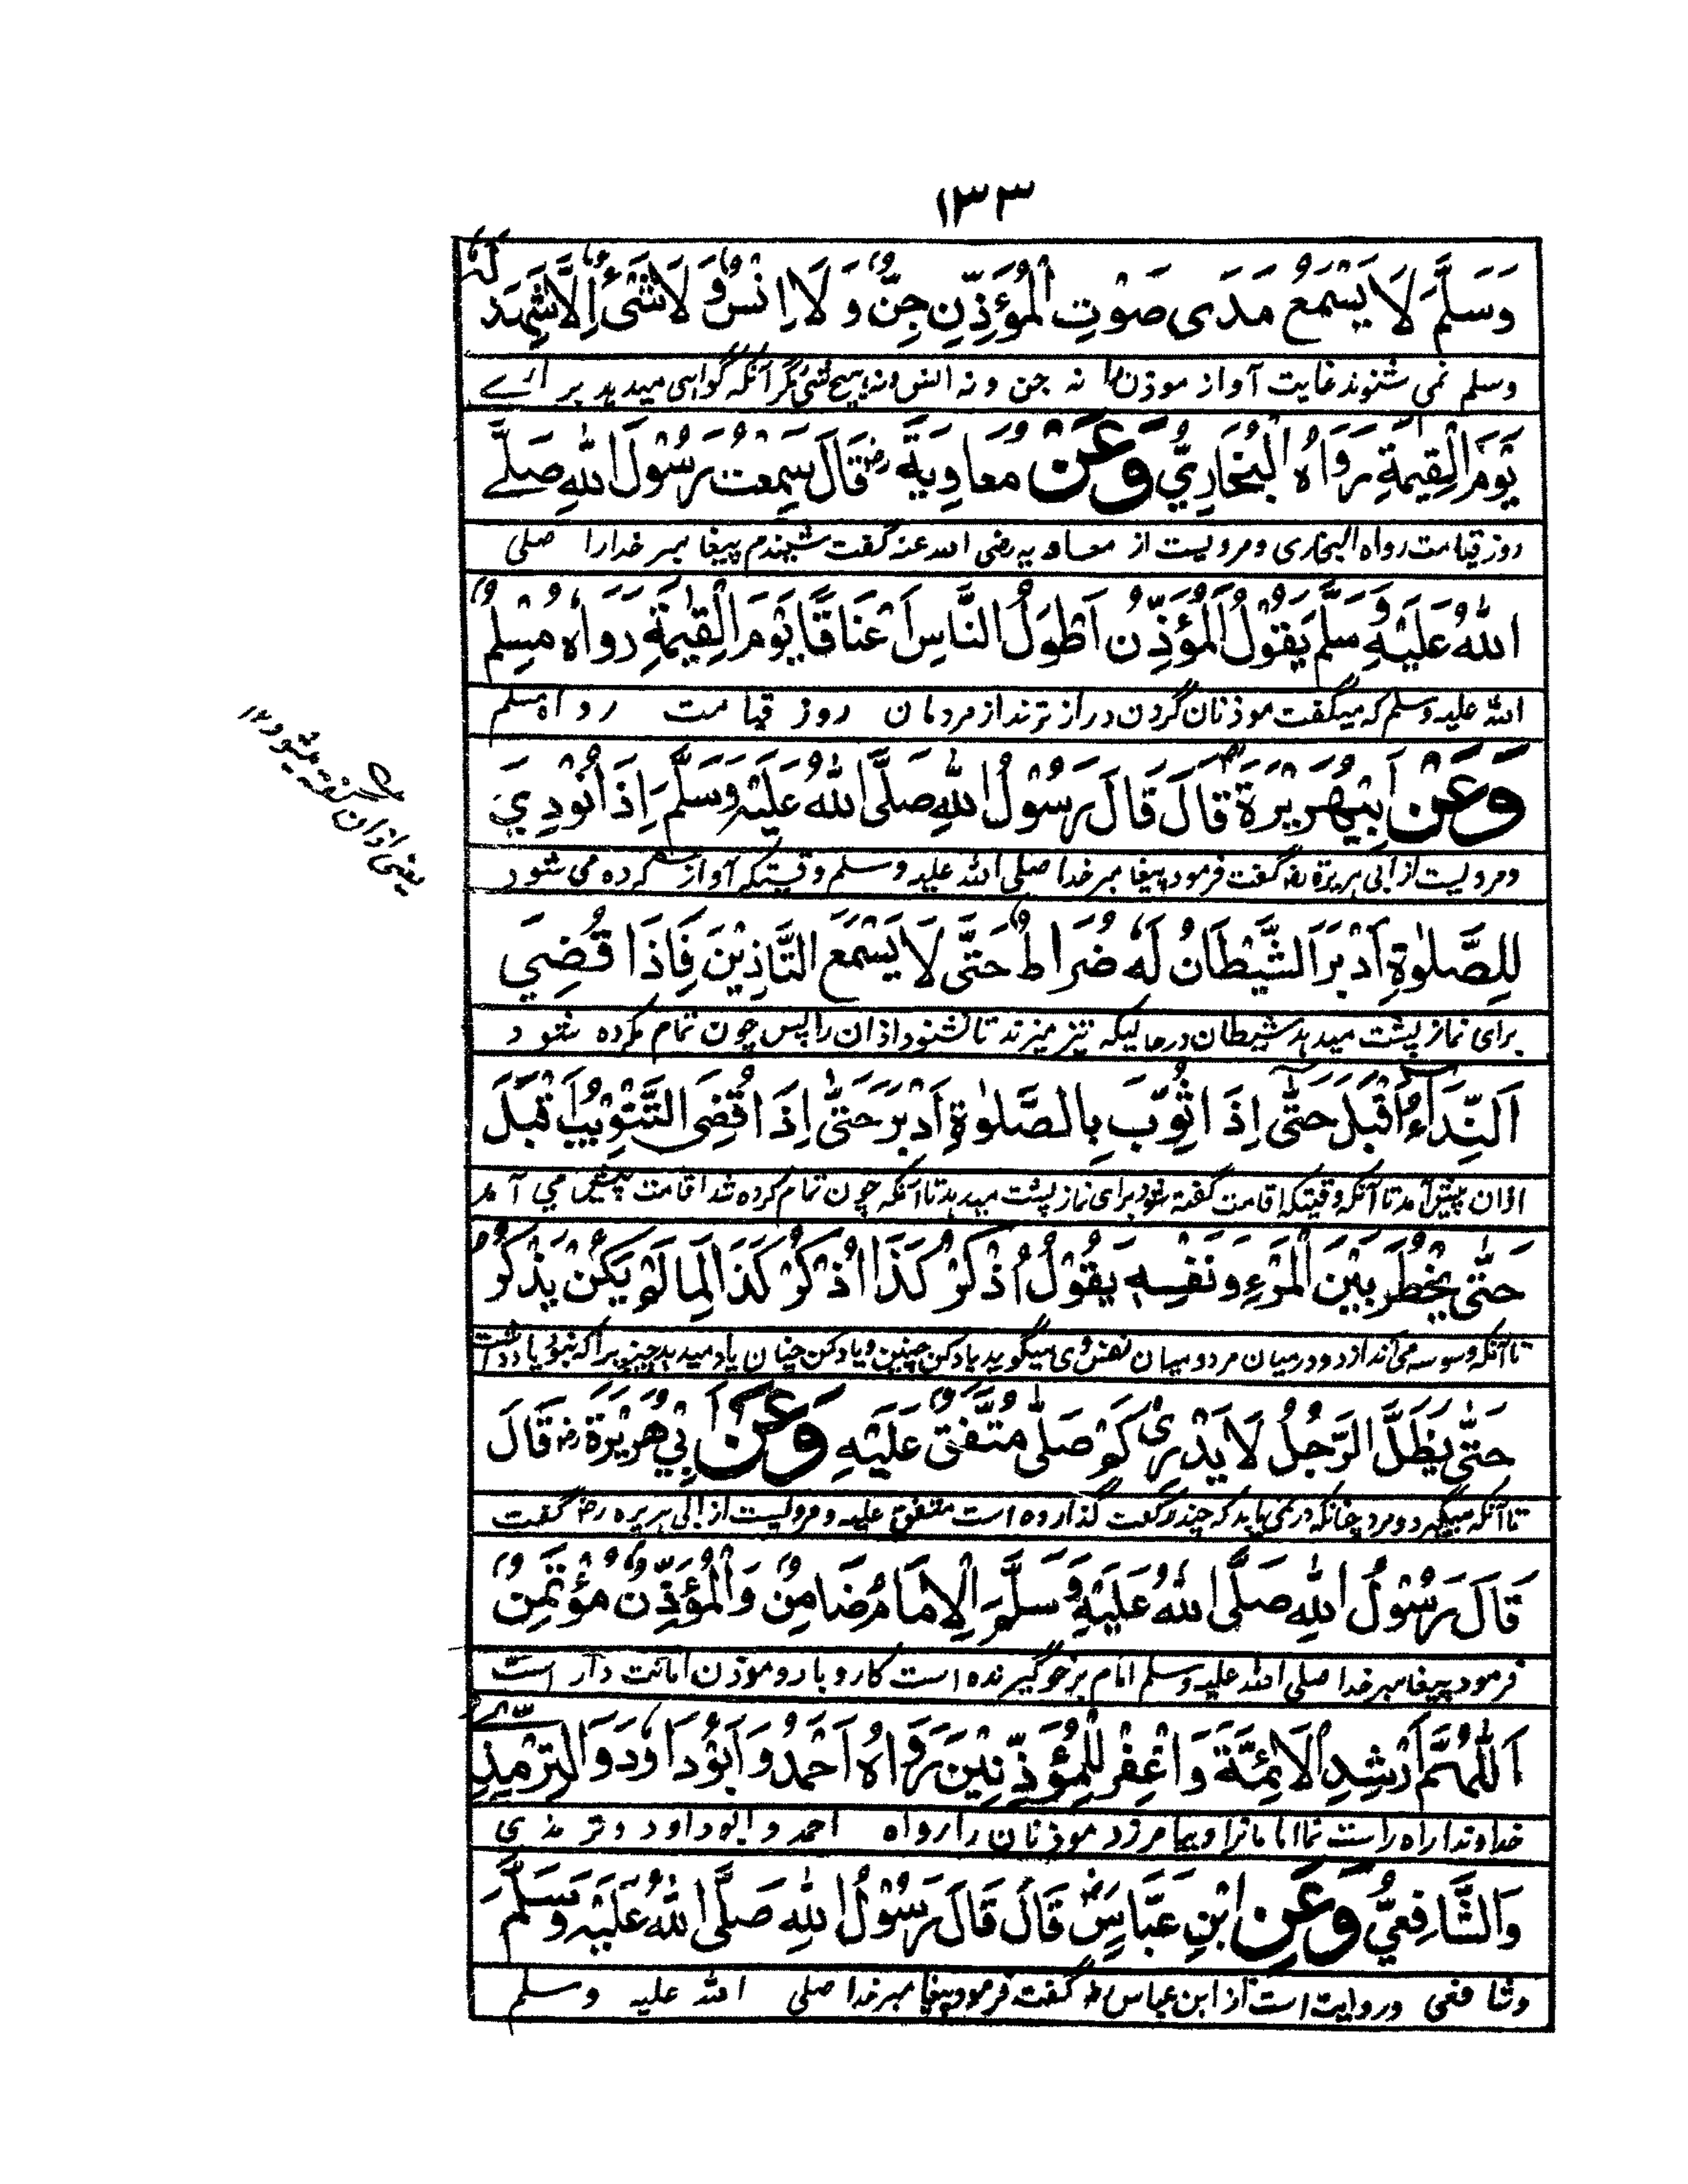 ١٣٣
وَسَلَّمَ لَا يَسْمَعُ مَدَى صَوْتِ الْمُؤَذِّنِ جِنٌّ وَلَا اِنْسٌ وَّلَا شَىْءٌ اِلَّا شَهِدَ لَهٗ
وسلم نمی شنوند غایت آواز موذن را نه جن و نه انس و نه هیچ شئی مگر آنکه گواهی میدهد برائے
يَوْمَ الْقِيٰمَةِ رَوَاهُ الْبُخَارِيُّ وَعَنْ مُعَاوِيَةَ رض قَالَ سَمِعْتُ رَسُوْلَ اللهِ صَلَّے
روز قیامت رواه البخاری و مرویست از معاویه رضی الله عنه گفت شنیدم پیغامبر خدا را صلی
اللهُ عَلَيْهِ وَسَلَّمَ يَقُوْلُ اَلْمُؤَذِّنُ اَطْوَلُ النَّاسِ اَعْنَاقًا يَوْمَ الْقِيٰمَةِ رَوَاهُ مُسْلِمٌ
الله علیه وسلم که میگفت موذنان گردن دراز ترند از مردمان روز قیامت رواه مسلم
وَعَنْ اَبِيْ هُرَيْرَةَ رض قَالَ قَالَ رَسُوْلُ اللهِ صَلَّى اللهُ عَلَيْهِ وَسَلَّمَ اِذَا نُوْدِيَ
و مرویست از ابی هریرة رض گفت فرمود پیغامبر خدا صلی الله علیه وسلم وقتیکه آواز کرده می شود
لِلصَّلٰوةِ اَدْبَرَ الشَّيْطَانُ لَهٗ ضُرَاطٌ حَتّٰى لَا يَسْمَعَ التَّاذِيْنَ فَاِذَا قُضِيَ
برای نماز پشت میدهد شیطان در حالیکه تیز میزند تا نشنود اذان را پس چون تمام کرده شود
اَلنِّدَاءُ اَقْبَلَ حَتّٰى اِذَا ثُوِّبَ بِالصَّلٰوةِ اَدْبَرَ حَتّٰى اِذَا قُضِىَ التَّثْوِيْبُ اَقْبَلَ
اذان پیش آمد تا آنکه وقتیکه اقامت گفته شود برای نماز پشت میدهد تا آنکه چون تمام کرده شد اقامت پیش می آمد
حَتّٰى يَخْطُرَ بَيْنَ الْمَرْءِ وَنَفْسِهٖ يَقُوْلُ اُذْكُرْ كَذَا اُذْكُرْ كَذَا لِمَا لَمْ يَكُنْ يَذْكُرُ
تا آنکه وسوسه می اندازد در میان مرد و میان نفس وی میگوید یاد کن چنین و یاد کن چنان یاد میدهد چیزیرا که نبود یاد داشت
حَتّٰى يَظَلَّ الرَّجُلُ لَا يَدْرِىْ كَمْ صَلّٰى مُتَّفَقٌ عَلَيْهِ وَعَنْ اَبِيْ هُرَيْرَةَ رض قَالَ
تا آنکه میگردد مرد چنانکه در نمی یابد که چند رکعت گذارده است متفق علیه و مرویست از ابی هریره رض گفت
قَالَ رَسُوْلُ اللهِ صَلَّى اللهُ عَلَيْهِ وَسَلَّمَ اَلْاِمَامُ ضَامِنٌ وَالْمُؤَذِّنُ مُؤْتَمِنٌ
فرمود پیغامبر خدا صلی الله علیه وسلم امام بر خود گیرنده است کار و بار و موذن امانت دار است
اَللّٰهُمَّ اَرْشِدِ الْاَئِمَّةَ وَاغْفِرْ لِلْمُؤَذِّنِيْنَ رَوَاهُ اَحْمَدُ وَاَبُوْ دَاوٗدَ وَالتِّرْمِذِيُّ
خداوندا راه راست نما امامانرا و بیامرزد موذنان را رواه احمد و ابو داود و ترمذی
وَالشَّافِعِيُّ وَعَنِ ابْنِ عَبَّاسٍ رض قَالَ قَالَ رَسُوْلُ اللهِ صَلَّى اللهُ عَلَيْهِ وَسَلَّمَ
وشافعی و روایت است از ابن عباس رض گفت فرمود پیغامبر خدا صلی الله علیه وسلم
یعنی اذان گفته میشود ١٢